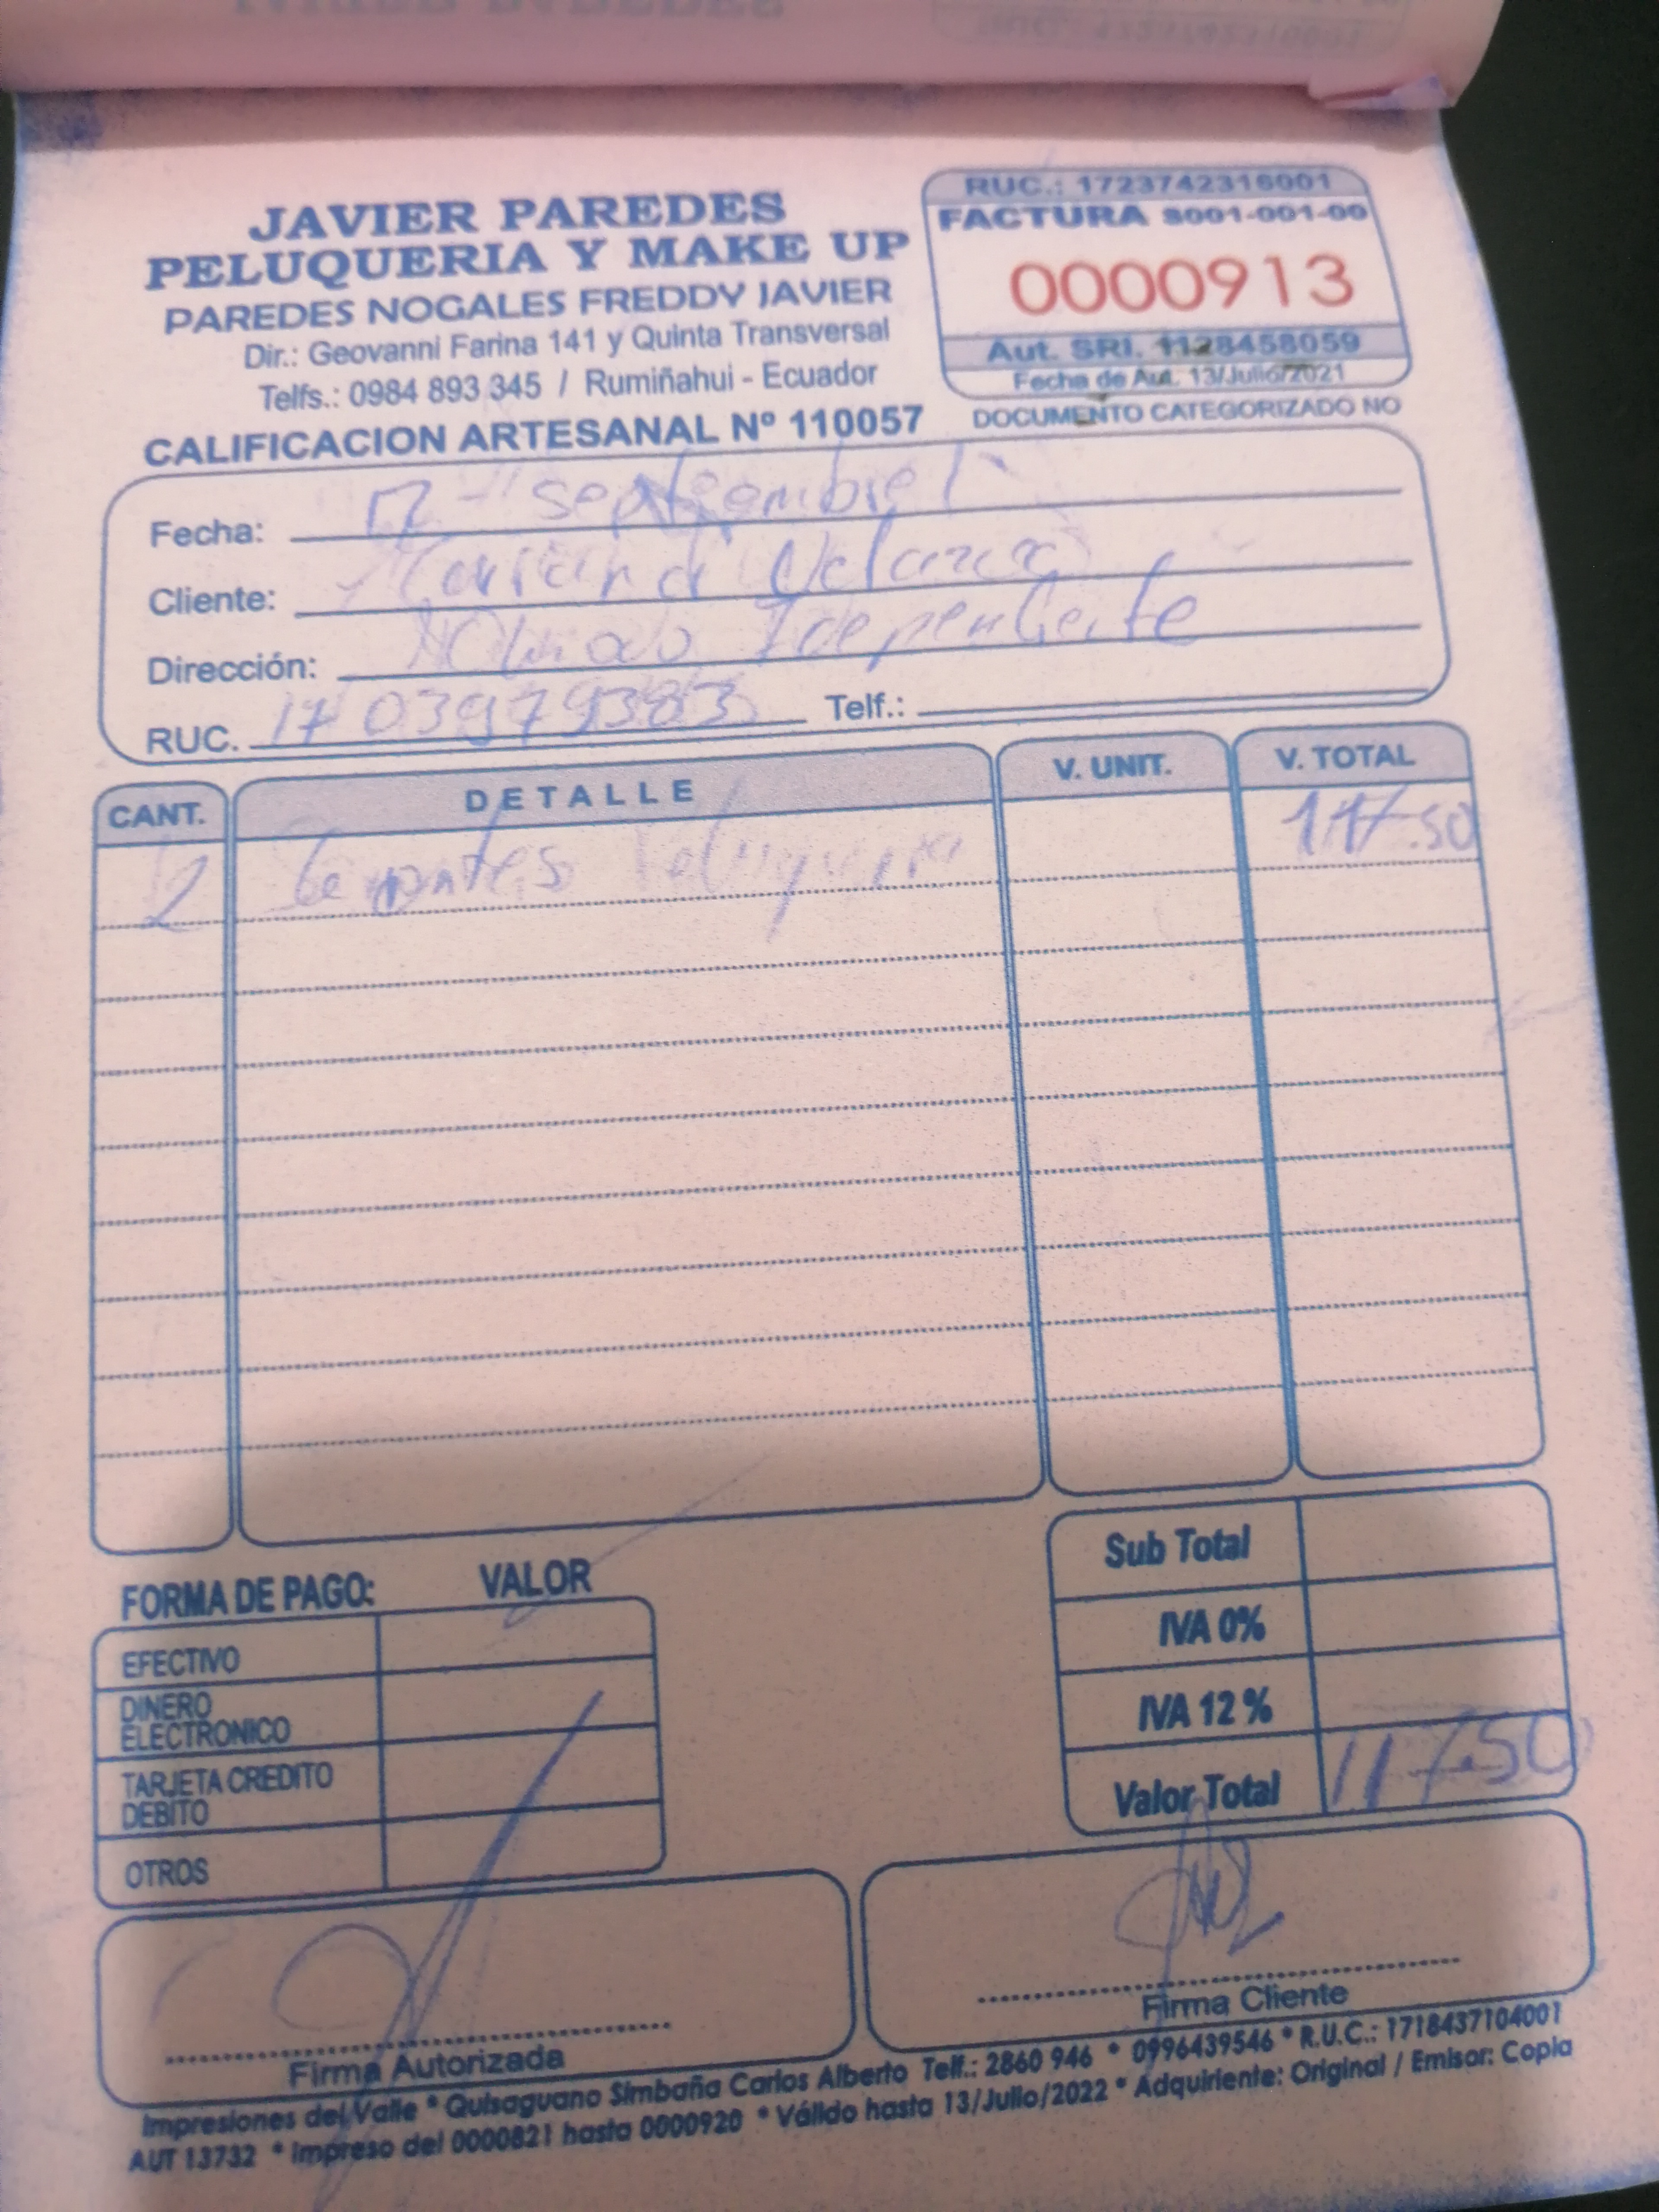 JAVIER PAREDES
PELUQUERIA Y MAKE UP
PAREDES NOGALES FREDDY JAVIER
Dir.: Geovanni Farina 141 y Quinta Transversal
Telfs.: 0984 893 345 / Rumiñahui - Ecuador
CALIFICACION ARTESANAL Nº 110057
RUC.: 1723742316001
FACTURA S001-001-00
0000913
Aut. SRI. 1128458059
Fecha de Aut. 13/Julio/2021
DOCUMENTO CATEGORIZADO NO
Fecha: 17 - septiembre
Cliente:
Dirección:
RUC. 1703979383 Telf.:
CANT. DETALLE V. UNIT. V. TOTAL
117.50
FORMA DE PAGO: VALOR
EFECTIVO
DINERO ELECTRONICO
TARJETA CREDITO DEBITO
OTROS
Sub Total
IVA 0%
IVA 12 %
Valor Total 117.50
Firma Autorizada
Firma Cliente
Impresiones del Valle * Quisaguano Simbaña Carlos Alberto Telf.: 2860 946 * 0996439546 * R.U.C.: 1718437104001
AUT 13732 * Impreso del 0000821 hasta 0000920 * Válido hasta 13/Julio/2022 * Adquiriente: Original / Emisor: Copia